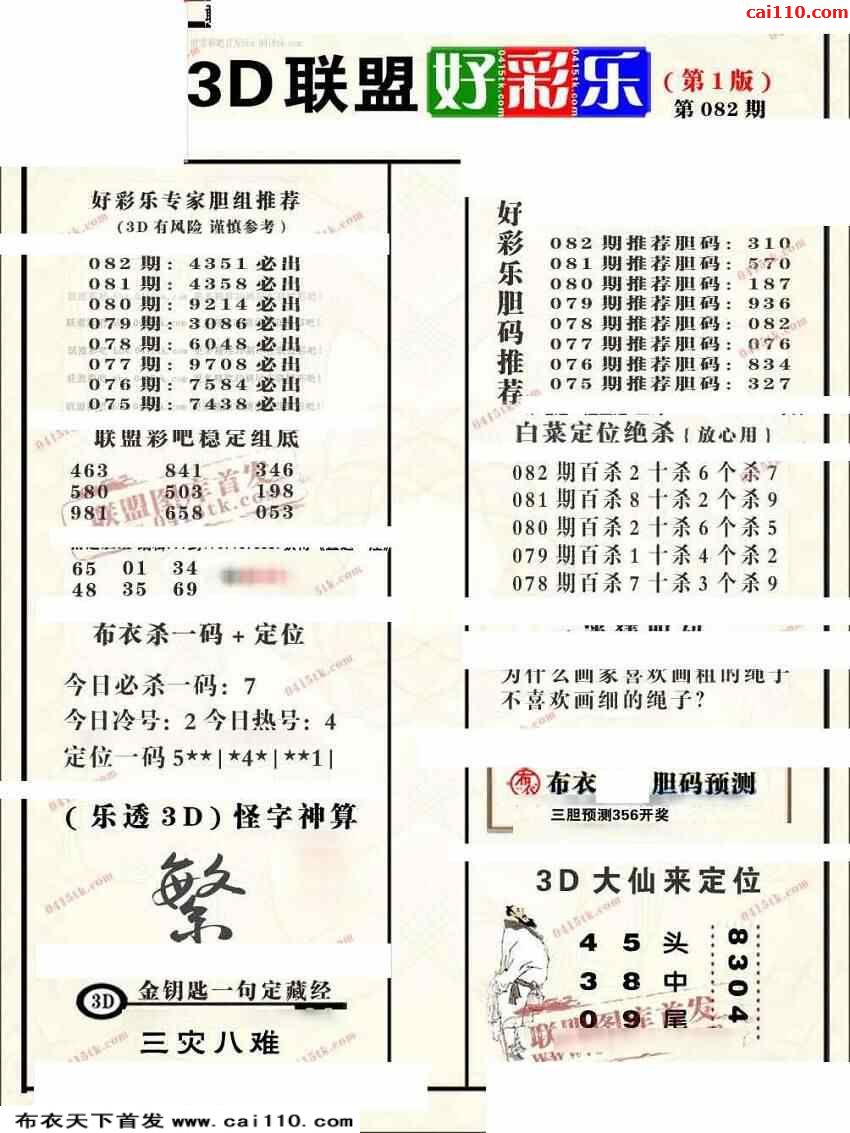 cai110.com
3D联盟 好彩乐
（第1版）
第082期
好彩乐专家胆组推荐
（3D有风险 谨慎参考）
082期：4351必出
081期：4358必出
080期：9214必出
079期：3086必出
078期：6048必出
077期：9708必出
076期：7584必出
075期：7438必出
联盟彩吧稳定组底
463 841 346
580 503 198
981 658 053
65 01 34
48 35 69
布衣杀一码+定位
今日必杀一码：7
今日冷号：2 今日热号：4
定位一码5**|*4*|**1|
（乐透3D）怪字神算
繁
3D 金钥匙一句定藏经
三灾八难
好彩乐胆码推荐
082期推荐胆码：310
081期推荐胆码：570
080期推荐胆码：187
079期推荐胆码：936
078期推荐胆码：082
077期推荐胆码：076
076期推荐胆码：834
075期推荐胆码：327
白菜定位绝杀{放心用}
082期百杀2十杀6个杀7
081期百杀8十杀2个杀9
080期百杀2十杀6个杀5
079期百杀1十杀4个杀2
078期百杀7十杀3个杀9
为什么画家喜欢画粗的绳子
不喜欢画细的绳子?
布衣 布衣 胆码预测
三胆预测356开奖
3D大仙来定位
4 5 头
3 8 中
0 9 尾
8304
联盟图库首发
0415tk.com
布衣天下首发 www.cai110.com